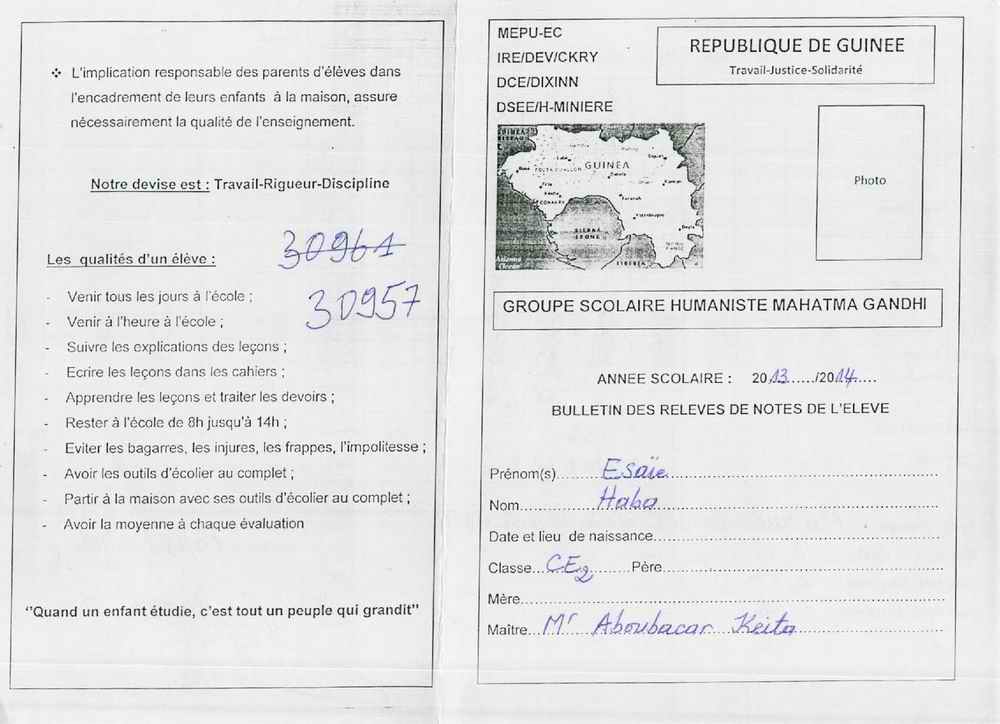 ❖ L'implication responsable des parents d'élèves dans
l'encadrement de leurs enfants à la maison, assure
nécessairement la qualité de l'enseignement.
Notre devise est : Travail-Rigueur-Discipline
30961
Les qualités d'un élève :
30957
- Venir tous les jours à l'école ;
- Venir à l'heure à l'école ;
- Suivre les explications des leçons ;
- Ecrire les leçons dans les cahiers ;
- Apprendre les leçons et traiter les devoirs ;
- Rester à l'école de 8h jusqu'à 14h ;
- Eviter les bagarres, les injures, les frappes, l'impolitesse ;
- Avoir les outils d'écolier au complet ;
- Partir à la maison avec ses outils d'écolier au complet ;
- Avoir la moyenne à chaque évaluation
"Quand un enfant étudie, c'est tout un peuple qui grandit"
MEPU-EC
IRE/DEV/CKRY
DCE/DIXINN
DSEE/H-MINIERE
REPUBLIQUE DE GUINEE
Travail-Justice-Solidarité
GUINEA
CONAKRY
SIERRA
LEONE
LIBERIA
Photo
GROUPE SCOLAIRE HUMANISTE MAHATMA GANDHI
ANNEE SCOLAIRE : 2013....../2014.....
BULLETIN DES RELEVES DE NOTES DE L'ELEVE
Prénom(s)......Esaïe
Nom......Haba
Date et lieu de naissance......
Classe...CE2......Père......
Mère......
Maître...Mr Aboubacar Keita